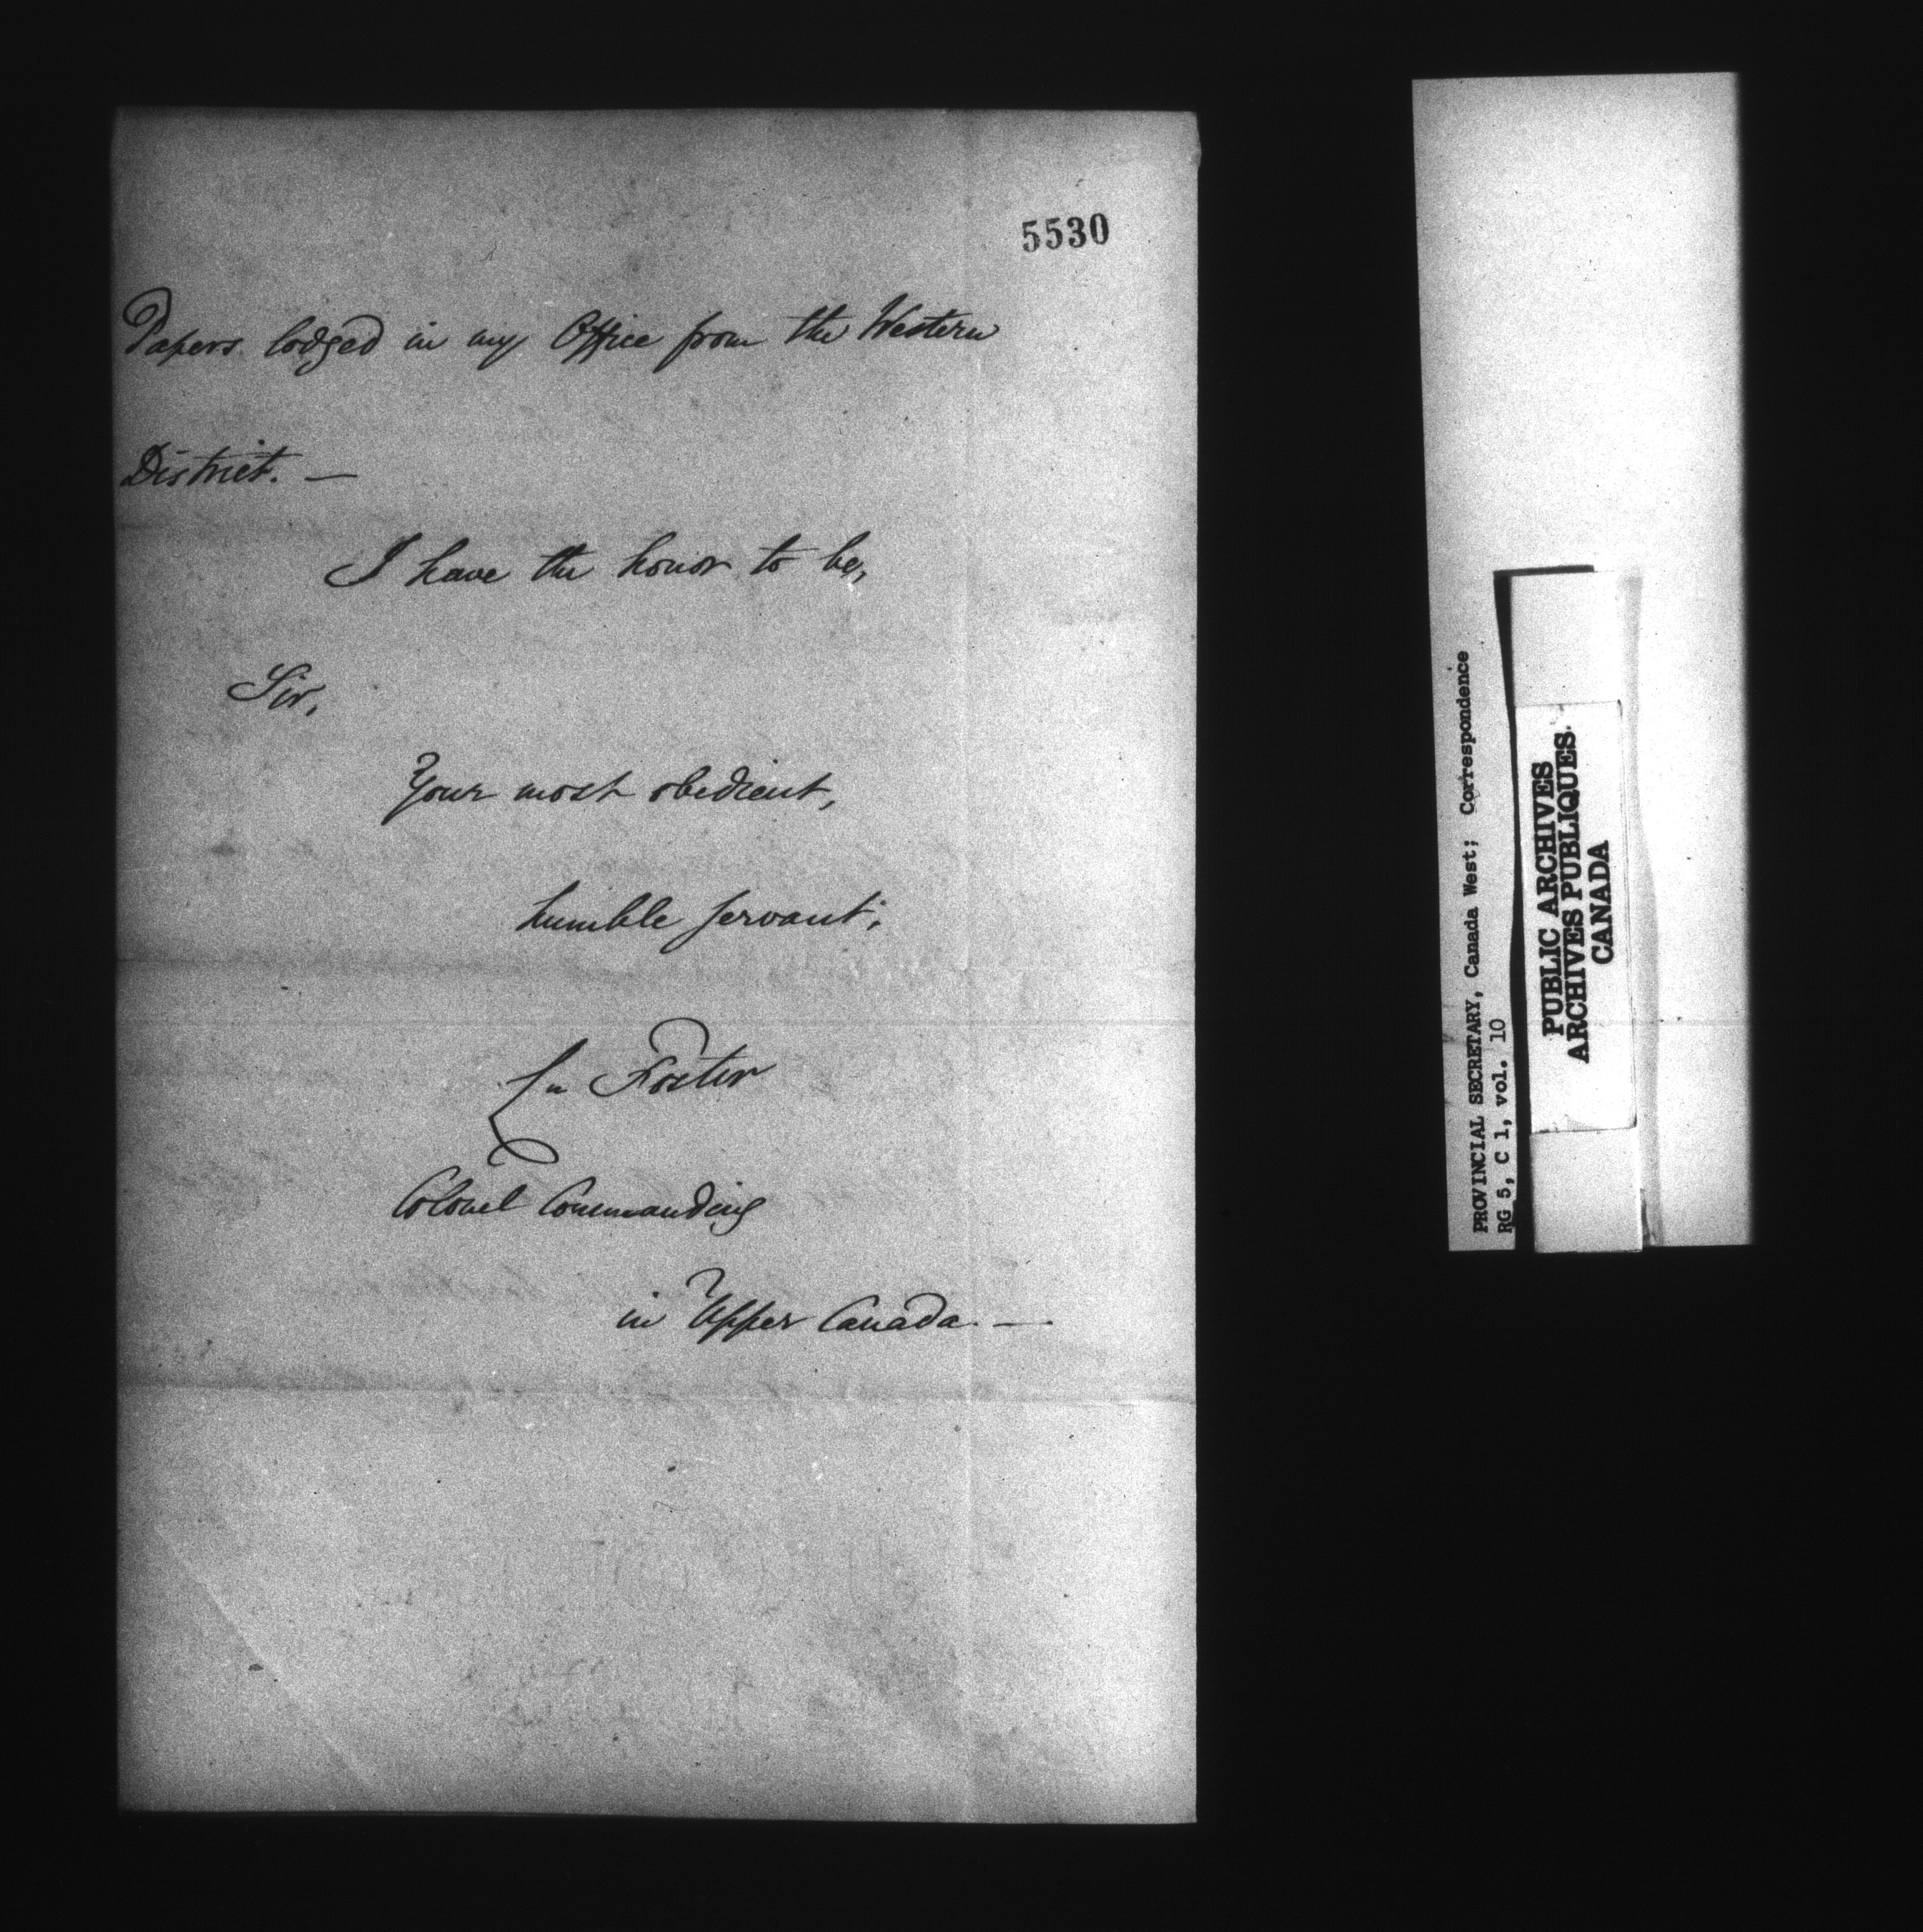 5530
Papers lodged in my Office from the Western
District. —
I have the honor to be,
Sir,
Your most obedient,
humble servant,
Foster
Colonel Commanding
in Upper Canada. —
PROVINCIAL SECRETARY, Canada West; Correspondence
RG 5, C 1, vol. 10
PUBLIC ARCHIVES
ARCHIVES PUBLIQUES
CANADA